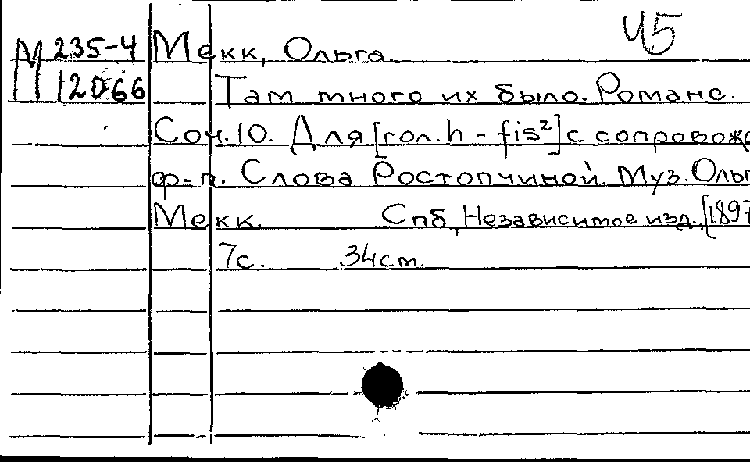 Ч5
М 235-4 Мекк, Ольга
12066 Там много их было. Романс.
Соч. 10. Для [гол. h - fis²] с сопровожд
ф-п. Слова Ростопчиной. Муз. Ольг
Мекк. Спб, Независимое изд., [1897
7с. 34 см.